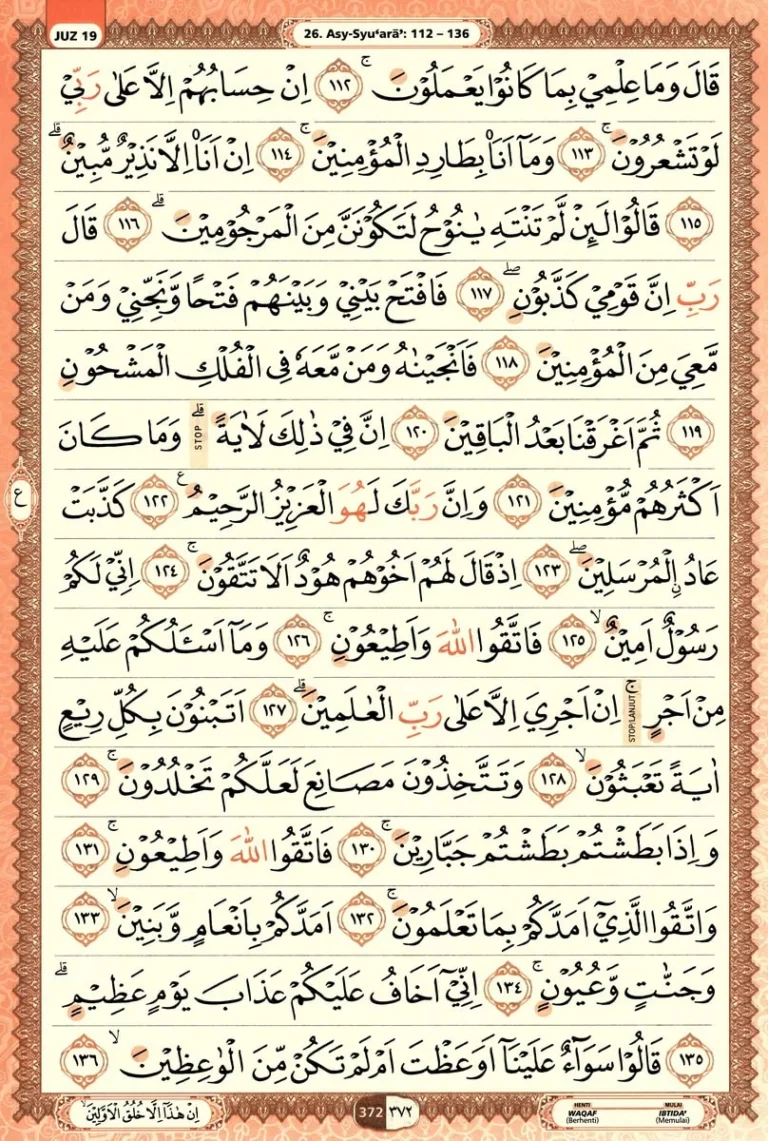 JUZ 19
26. Asy-Syu‘arā': 112 – 136
قَالَ وَمَا عِلْمِيْ بِمَا كَانُوْا يَعْمَلُوْنَ ۚ ﴿١١٢﴾ اِنْ حِسَابُهُمْ اِلَّا عَلٰى رَبِّيْ
لَوْ تَشْعُرُوْنَ ۚ ﴿١١٣﴾ وَمَآ اَنَا۠ بِطَارِدِ الْمُؤْمِنِيْنَ ۚ ﴿١١٤﴾ اِنْ اَنَا۠ اِلَّا نَذِيْرٌ مُّبِيْنٌ ۗ
﴿١١٥﴾ قَالُوْا لَىِٕنْ لَّمْ تَنْتَهِ يٰنُوْحُ لَتَكُوْنَنَّ مِنَ الْمَرْجُوْمِيْنَ ۗ ﴿١١٦﴾ قَالَ
رَبِّ اِنَّ قَوْمِيْ كَذَّبُوْنِ ۖ ﴿١١٧﴾ فَافْتَحْ بَيْنِيْ وَبَيْنَهُمْ فَتْحًا وَّنَجِّنِيْ وَمَنْ
مَّعِيَ مِنَ الْمُؤْمِنِيْنَ ﴿١١٨﴾ فَاَنْجَيْنٰهُ وَمَنْ مَّعَهٗ فِى الْفُلْكِ الْمَشْحُوْنِ
﴿١١٩﴾ ثُمَّ اَغْرَقْنَا بَعْدُ الْبَاقِيْنَ ﴿١٢٠﴾ اِنَّ فِيْ ذٰلِكَ لَاٰيَةً ۗ STOP وَمَا كَانَ
اَكْثَرُهُمْ مُّؤْمِنِيْنَ ﴿١٢١﴾ وَاِنَّ رَبَّكَ لَهُوَ الْعَزِيْزُ الرَّحِيْمُ ࣖ ﴿١٢٢﴾ كَذَّبَتْ
ع
عَادُ ِۨالْمُرْسَلِيْنَ ۖ ﴿١٢٣﴾ اِذْ قَالَ لَهُمْ اَخُوْهُمْ هُوْدٌ اَلَا تَتَّقُوْنَ ۚ ﴿١٢٤﴾ اِنِّيْ لَكُمْ
رَسُوْلٌ اَمِيْنٌ ۙ ﴿١٢٥﴾ فَاتَّقُوا اللّٰهَ وَاَطِيْعُوْنِ ۚ ﴿١٢٦﴾ وَمَآ اَسْـَٔلُكُمْ عَلَيْهِ
مِنْ اَجْرٍ ۚ STOP/LANJUT اِنْ اَجْرِيَ اِلَّا عَلٰى رَبِّ الْعٰلَمِيْنَ ۗ ﴿١٢٧﴾ اَتَبْنُوْنَ بِكُلِّ رِيْعٍ
اٰيَةً تَعْبَثُوْنَ ۙ ﴿١٢٨﴾ وَتَتَّخِذُوْنَ مَصَانِعَ لَعَلَّكُمْ تَخْلُدُوْنَ ۚ ﴿١٢٩﴾
وَاِذَا بَطَشْتُمْ بَطَشْتُمْ جَبَّارِيْنَ ۚ ﴿١٣٠﴾ فَاتَّقُوا اللّٰهَ وَاَطِيْعُوْنِ ۚ ﴿١٣١﴾
وَاتَّقُوا الَّذِيْٓ اَمَدَّكُمْ بِمَا تَعْلَمُوْنَ ۚ ﴿١٣٢﴾ اَمَدَّكُمْ بِاَنْعَامٍ وَّبَنِيْنَ ۙ ﴿١٣٣﴾
وَجَنّٰتٍ وَّعُيُوْنٍ ۚ ﴿١٣٤﴾ اِنِّيْٓ اَخَافُ عَلَيْكُمْ عَذَابَ يَوْمٍ عَظِيْمٍ ۗ
﴿١٣٥﴾ قَالُوْا سَوَاۤءٌ عَلَيْنَآ اَوَعَظْتَ اَمْ لَمْ تَكُنْ مِّنَ الْوٰعِظِيْنَ ۙ ﴿١٣٦﴾
اِنْ هٰذَآ اِلَّا خُلُقُ الْاَوَّلِيْنَ ۙ
372 ٣٧٢
HENTI WAQAF (Berhenti)
MULAI IBTIDA' (Memulai)